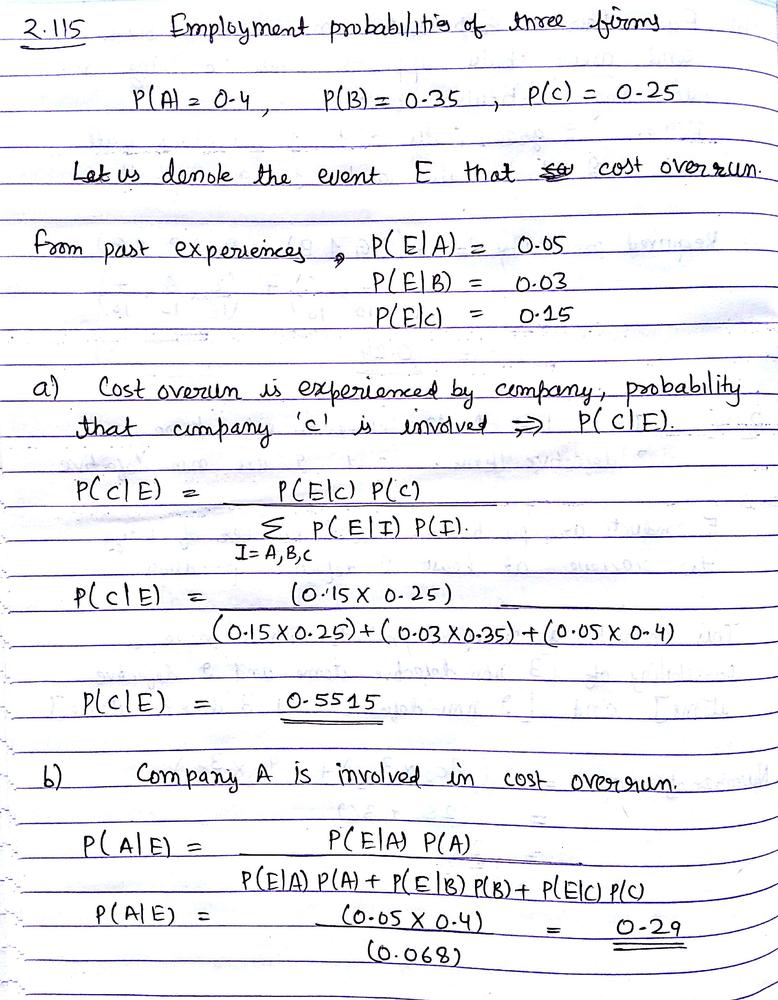 2.115 Employment probabilities of three firms
P(A) = 0.4, P(B) = 0.35, P(C) = 0.25
Let us denote the event E that cost overrun.
from past experiences, P(E|A) = 0.05
P(E|B) = 0.03
P(E|C) = 0.15
a) Cost overun is experienced by company, probability
that company 'C' is involved ⇒ P(C|E).
P(C|E) = P(E|C) P(C)
Σ P(E|I) P(I).
I=A,B,C
P(C|E) = (0.15 X 0.25)
(0.15 X 0.25) + (0.03 X 0.35) + (0.05 X 0.4)
P(C|E) = 0.5515
b) Company A is involved in cost overrun.
P(A|E) = P(E|A) P(A)
P(E|A) P(A) + P(E|B) P(B) + P(E|C) P(C)
P(A|E) = (0.05 X 0.4) = 0.29
(0.068)